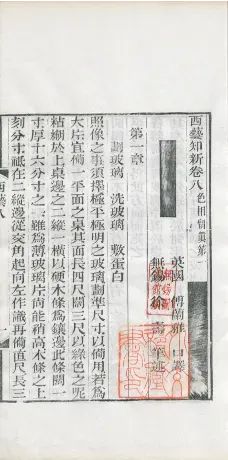 西藝知新卷八 色相留真第一
英國 傅蘭雅 口譯
無錫 徐壽 筆述
第一章
劃玻璃 洗玻璃 敷蛋白
照像之事須擇極平極明之玻璃劃準尺寸以備用若為
大片宜備一平面之桌其面長四尺闊三尺以綠色之呢
粘糊於上桌邊之二縱一橫以硬木條為鑲邊此條闊一
寸厚十六分寸之一雖為薄玻璃片尚能稍高木條之上
刻分寸祗在二縱邊從交角起向左作識再備直尺長三
西藝八